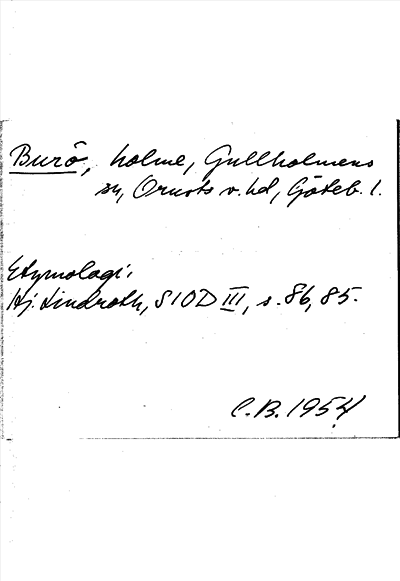 Burö, holme, Gullholmens
sn, Orusts v. hd, Göteb. l.
Etymologi:
Hj. Lindroth, SIOD III, s. 86, 85.
C.B. 1954